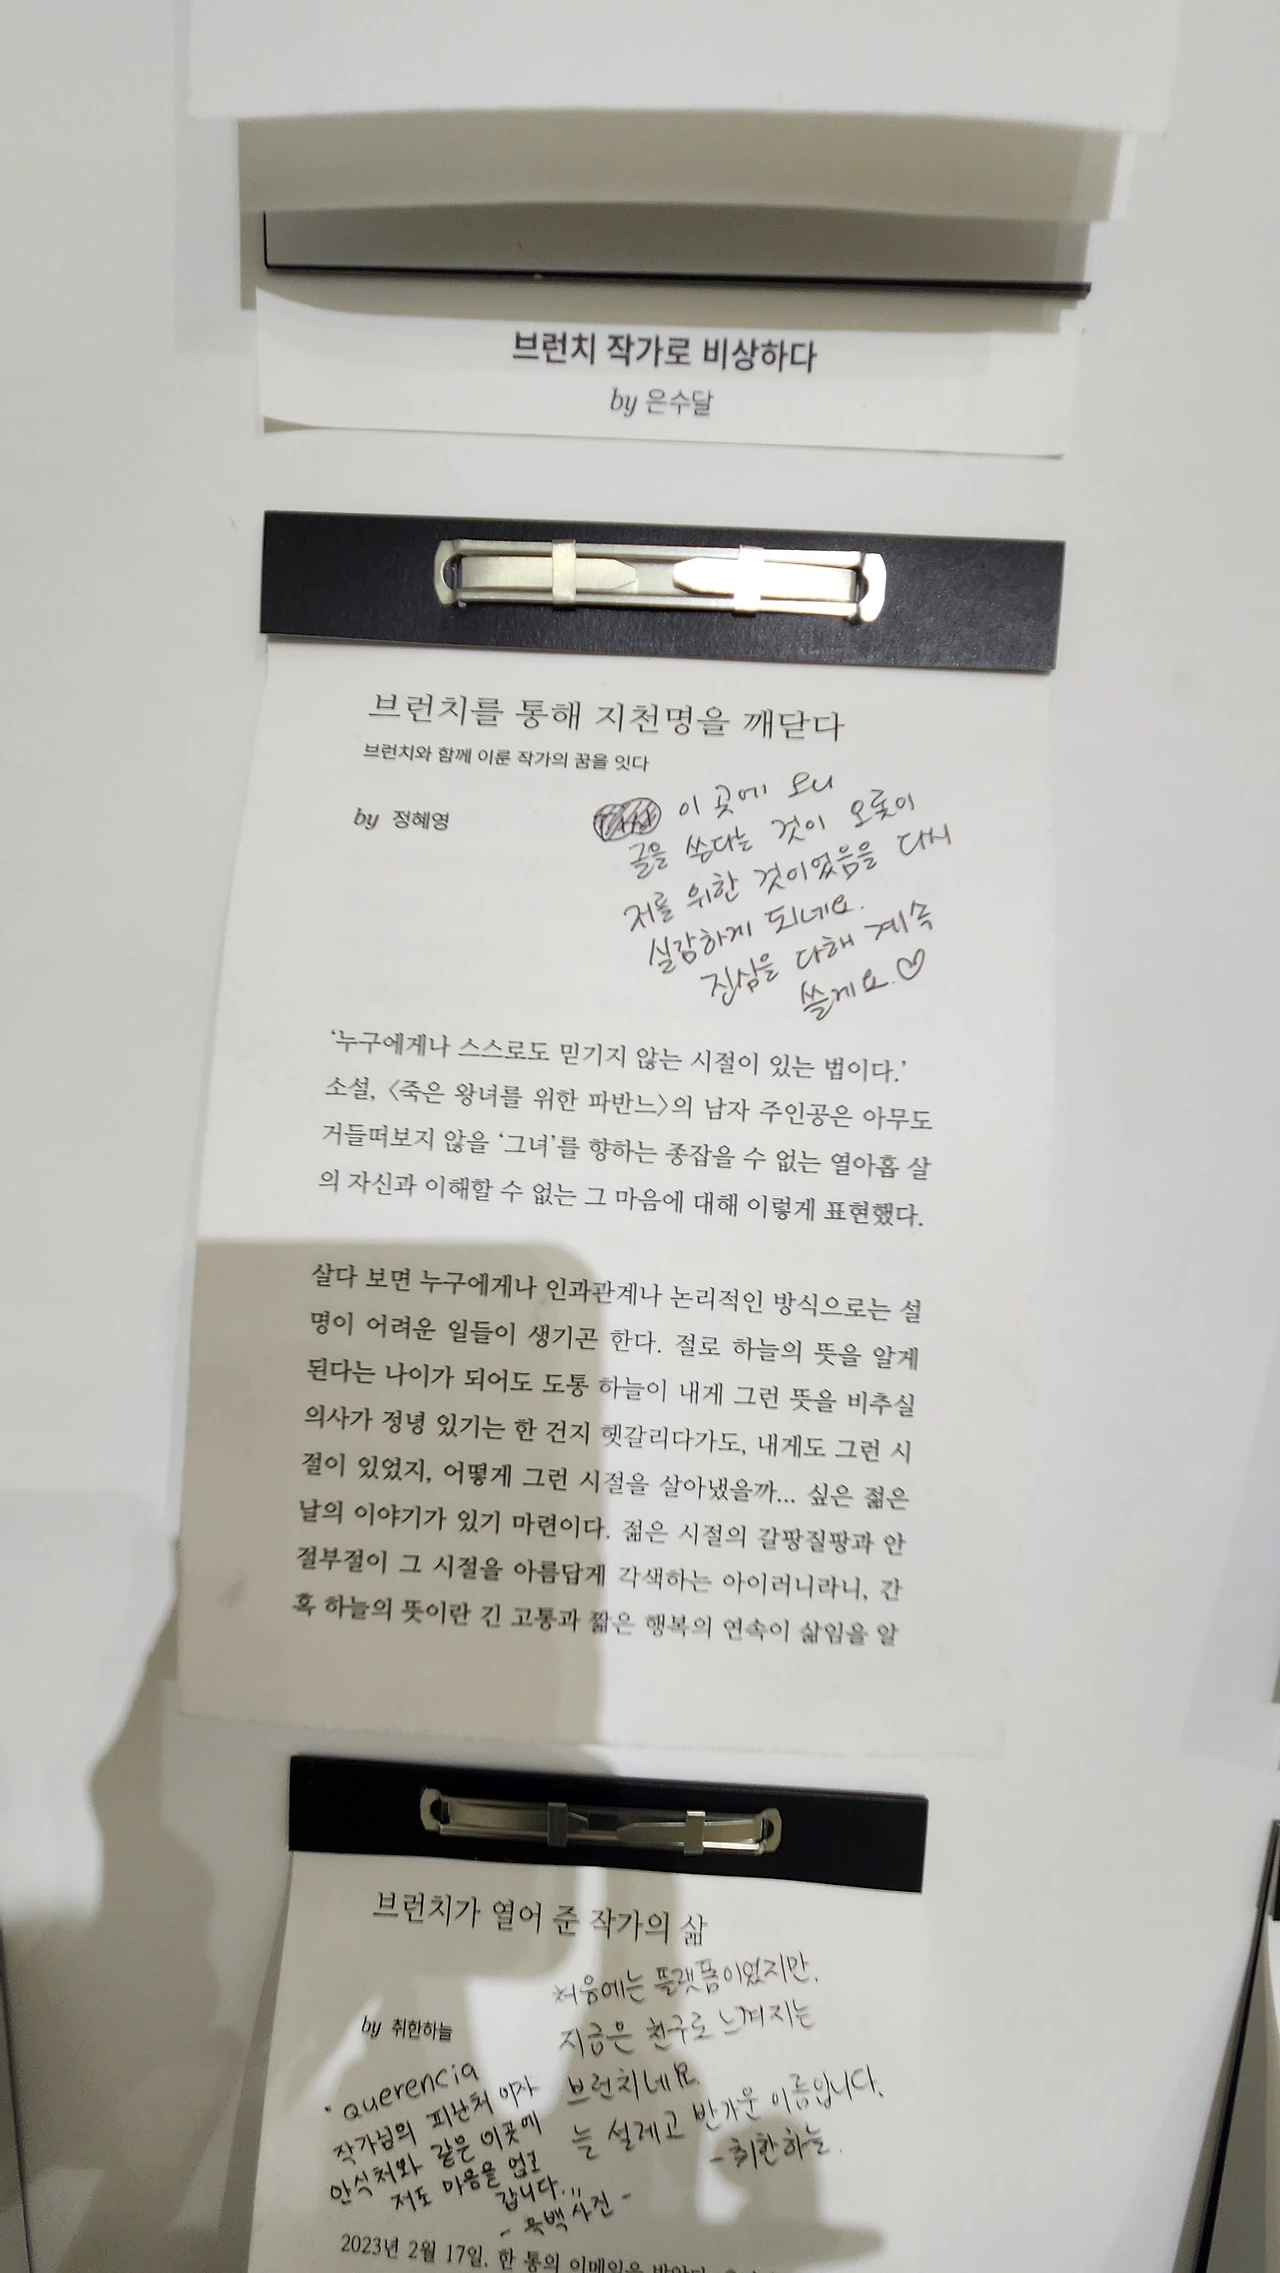 브런치 작가로 비상하다
by 은수달
브런치를 통해 지천명을 깨닫다
브런치와 함께 이룬 작가의 꿈을 잇다
by 정혜영
이 곳에 오니
글을 쓴다는 것이 오롯이
저를 위한 것이었음을 다시
실감하게 되네요.
진심을 다해 계속
쓸게요.♡
‘누구에게나 스스로도 믿기지 않는 시절이 있는 법이다.’
소설, 〈죽은 왕녀를 위한 파반느〉의 남자 주인공은 아무도
거들떠보지 않을 ‘그녀’를 향하는 종잡을 수 없는 열아홉 살
의 자신과 이해할 수 없는 그 마음에 대해 이렇게 표현했다.
살다 보면 누구에게나 인과관계나 논리적인 방식으로는 설
명이 어려운 일들이 생기곤 한다. 절로 하늘의 뜻을 알게
된다는 나이가 되어도 도통 하늘이 내게 그런 뜻을 비추실
의사가 정녕 있기는 한 건지 헷갈리다가도, 내게도 그런 시
절이 있었지, 어떻게 그런 시절을 살아냈을까... 싶은 젊은
날의 이야기가 있기 마련이다. 젊은 시절의 갈팡질팡과 안
절부절이 그 시절을 아름답게 각색하는 아이러니라니, 간
혹 하늘의 뜻이란 긴 고통과 짧은 행복의 연속이 삶임을 알
브런치가 열어 준 작가의 삶
by 취한하늘
처음에는 플랫폼이었지만,
지금은 친구로 느껴지는
브런치네요.
늘 설레고 반가운 이름입니다.
- 취한하늘.
· Querencia
작가님의 피난처 이자
안식처와 같은 이곳에
저도 마음을 얹고
갑니다...
- 흑백사진 -
2023년 2월 17일, 한 통의 이메일을 받았다.